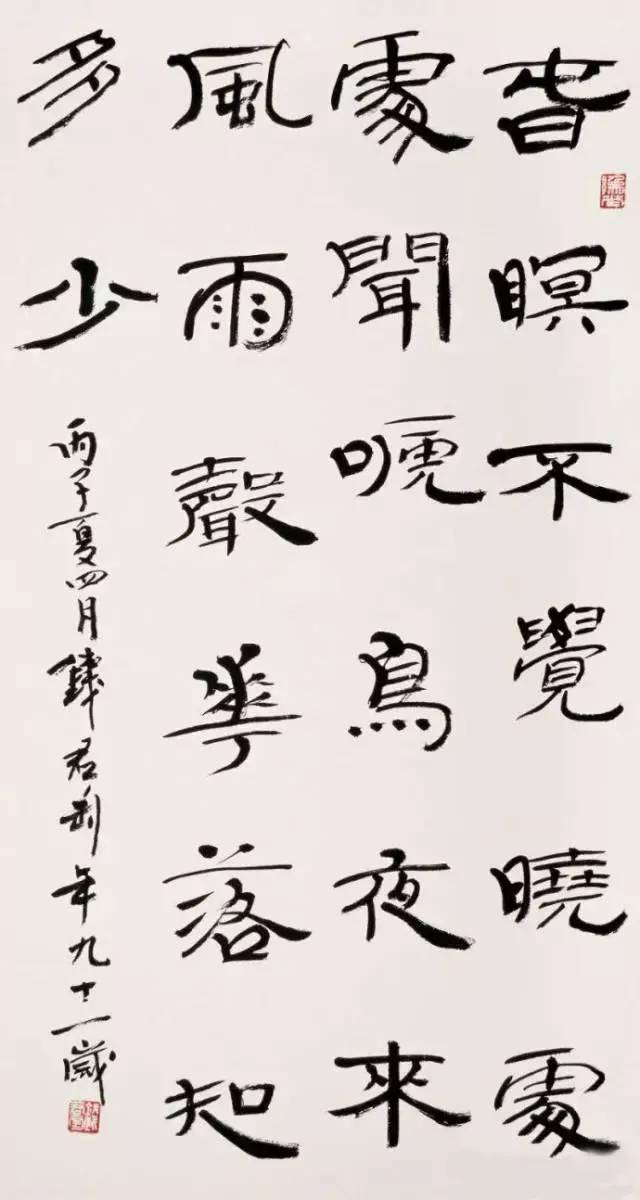 旾瞑不覺曉處
處聞嗁鳥夜來
風雨聲華落知
多少
丙子夏四月錢君匋年九十一歲